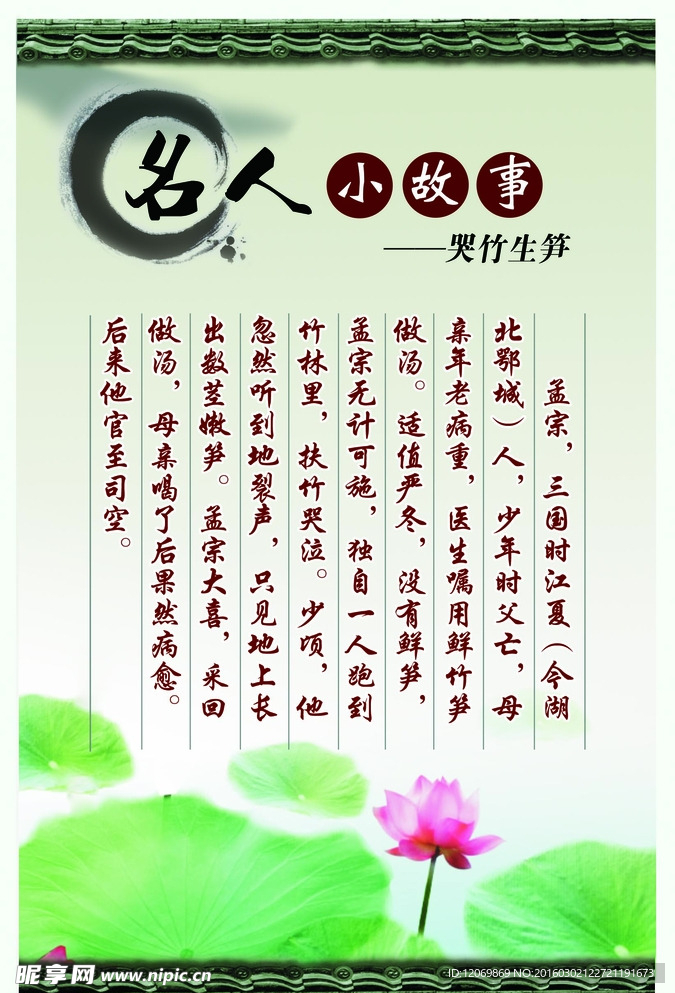 名人小故事
——哭竹生笋
孟宗，三国时江夏（今湖
北鄂城）人，少年时父亡，母
亲年老病重，医生嘱用鲜竹笋
做汤。适值严冬，没有鲜笋，
孟宗无计可施，独自一人跑到
竹林里，扶竹哭泣。少顷，他
忽然听到地裂声，只见地上长
出数茎嫩笋。孟宗大喜，采回
做汤，母亲喝了后果然病愈。
后来他官至司空。
昵享网 www.nipic.cn
ID:12069869 NO:20160302122721191673